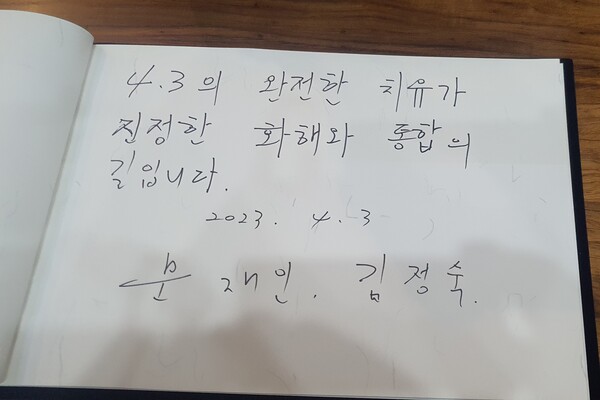 4.3의 완전한 치유가
진정한 화해와 통합의
길입니다.
2023. 4.3
문재인. 김정숙.